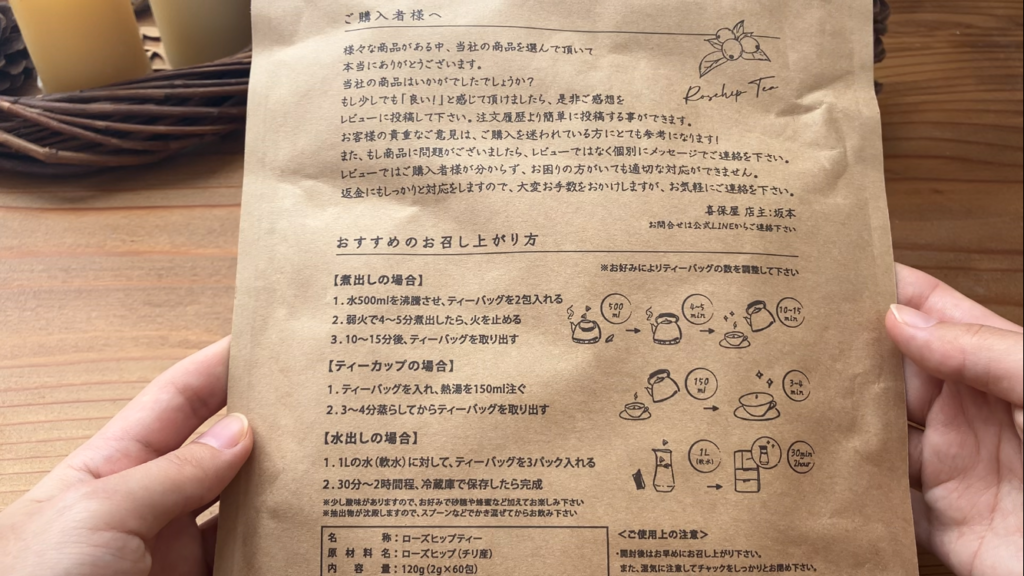 ご購入者様へ
様々な商品がある中、当社の商品を選んで頂いて
本当にありがとうございます。
当社の商品はいかがでしたでしょうか?
もし少しでも「良い!」と感じて頂けましたら、是非ご感想を
レビューに投稿して下さい。注文履歴より簡単に投稿する事ができます。
お客様の貴重なご意見は、ご購入を迷われている方にとても参考になります!
また、もし商品に問題がございましたら、レビューではなく個別にメッセージでご連絡を下さい。
レビューではご購入者様が分からず、お困りの方がいても適切な対応ができません。
返金にもしっかりと対応をしますので、大変お手数をおかけしますが、お気軽にご連絡を下さい。
Rosehip Tea
喜保屋 店主:坂本
お問合せは公式LINEからご連絡下さい
おすすめのお召し上がり方
※お好みによりティーバッグの数を調整して下さい
【煮出しの場合】
1. 水500mlを沸騰させ、ティーバッグを2包入れる
2. 弱火で4〜5分煮出したら、火を止める
3. 10〜15分後、ティーバッグを取り出す
500 ml
4~5 min
10~15 min
【ティーカップの場合】
1. ティーバッグを入れ、熱湯を150ml注ぐ
2. 3〜4分蒸らしてからティーバッグを取り出す
150 ml
3~4 min
【水出しの場合】
1. 1Lの水(軟水)に対して、ティーバッグを3パック入れる
2. 30分〜2時間程、冷蔵庫で保存したら完成
※少し酸味がありますので、お好みで砂糖や蜂蜜など加えてお楽しみ下さい
※抽出物が沈殿しますので、スプーンなどでかき混ぜてからお飲み下さい
1L (軟水)
30min 2hour
名称:ローズヒップティー
原材料名:ローズヒップ(チリ産)
内容量:120g(2g×60包)
<ご使用上の注意>
・開封後はお早めにお召し上がり下さい。
また、湿気に注意してチャックをしっかりとお閉め下さい。